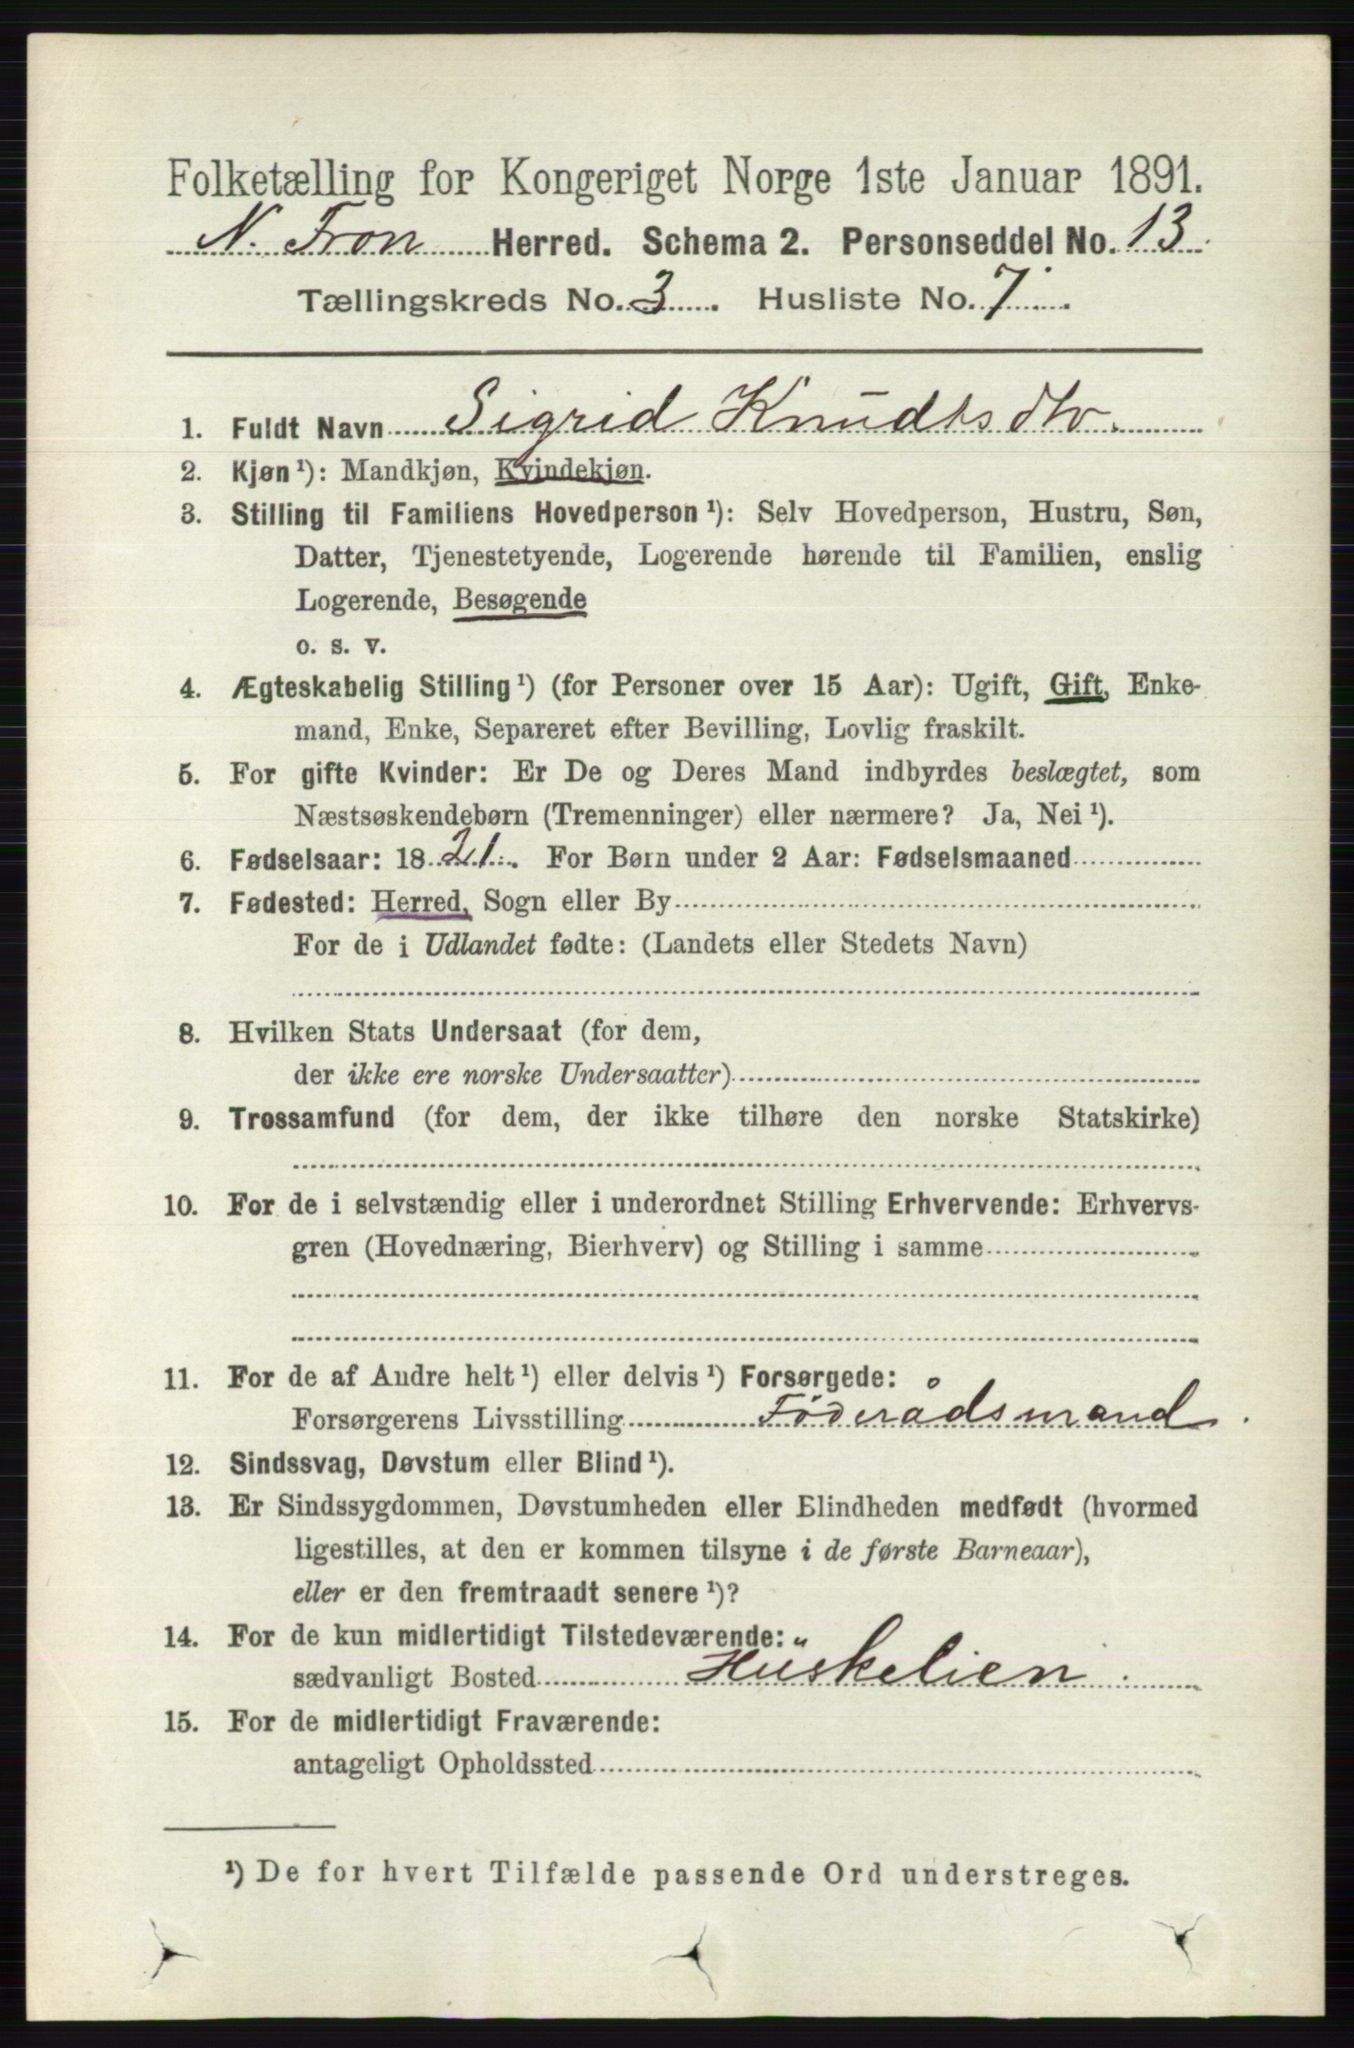 Folketælling for Kongeriget Norge 1ste Januar 1891.
N. Fron Herred. Schema 2. Personseddel No. 13.
Tællingskreds No. 3. Husliste No. 7.
1. Fuldt Navn Sigrid Knudtsdtr.
2. Kjøn¹): Mandkjøn, Kvindekjøn.
3. Stilling til Familiens Hovedperson¹): Selv Hovedperson, Hustru, Søn,
Datter, Tjenestetyende, Logerende hørende til Familien, enslig
Logerende, Besøgende
o. s. v.
4. Ægteskabelig Stilling¹) (for Personer over 15 Aar): Ugift, Gift, Enke-
mand, Enke, Separeret efter Bevilling, Lovlig fraskilt.
5. For gifte Kvinder: Er De og Deres Mand indbyrdes beslægtet, som
Næstsøskendebørn (Tremenninger) eller nærmere? Ja, Nei¹).
6. Fødselsaar: 1821. For Børn under 2 Aar: Fødselsmaaned
7. Fødested: Herred, Sogn eller By
For de i Udlandet fødte: (Landets eller Stedets Navn)
8. Hvilken Stats Undersaat (for dem,
der ikke ere norske Undersaatter)
9. Trossamfund (for dem, der ikke tilhøre den norske Statskirke)
10. For de i selvstændig eller i underordnet Stilling Erhvervende: Erhvervs-
gren (Hovednæring, Bierhverv) og Stilling i samme
11. For de af Andre helt¹) eller delvis¹) Forsørgede:
Forsørgerens Livsstilling Föderådsmand.
12. Sindssvag, Døvstum eller Blind¹).
13. Er Sindssygdommen, Døvstumheden eller Blindheden medfødt (hvormed
ligestilles, at den er kommen tilsyne i de første Barneaar),
eller er den fremtraadt senere¹)?
14. For de kun midlertidigt Tilstedeværende:
sædvanligt Bosted Huskelien.
15. For de midlertidigt Fraværende:
antageligt Opholdssted
¹) De for hvert Tilfælde passende Ord understreges.